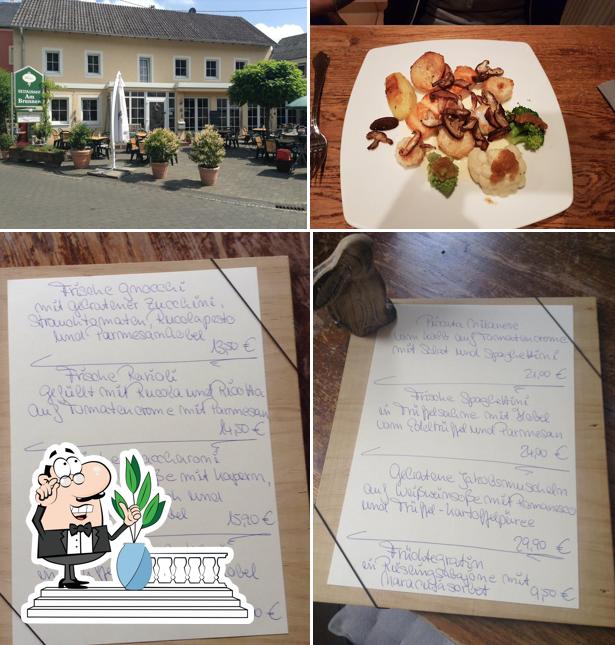 RESTAURANT
Am
Brunnen
Frische Gnocchi
mit gebratener Zucchini,
Strauchtomaten, Rucolapesto
und Parmesanhobel
13,50 €
Frische Ravioli
gefüllt mit Rucola und Ricotta
auf Tomatencreme mit Parmesan
14,50 €
mit Kapern,
und
15,70 €
€
Piccata Milanese
vom Kalb auf Tomatencreme
mit Salat und Spaghettini
21,00 €
Frische Spaghettini
in Trüffelsahne mit Hobel
vom Edeltrüffel und Parmesan
24,90 €
Gebratene Jakobsmuscheln
auf Weißweinsoße mit Romanesco
und Trüffel-Kartoffelpüree
29,90 €
Früchtegratin
in Rieslingsabajone mit
Maracujasorbet 9,50 €